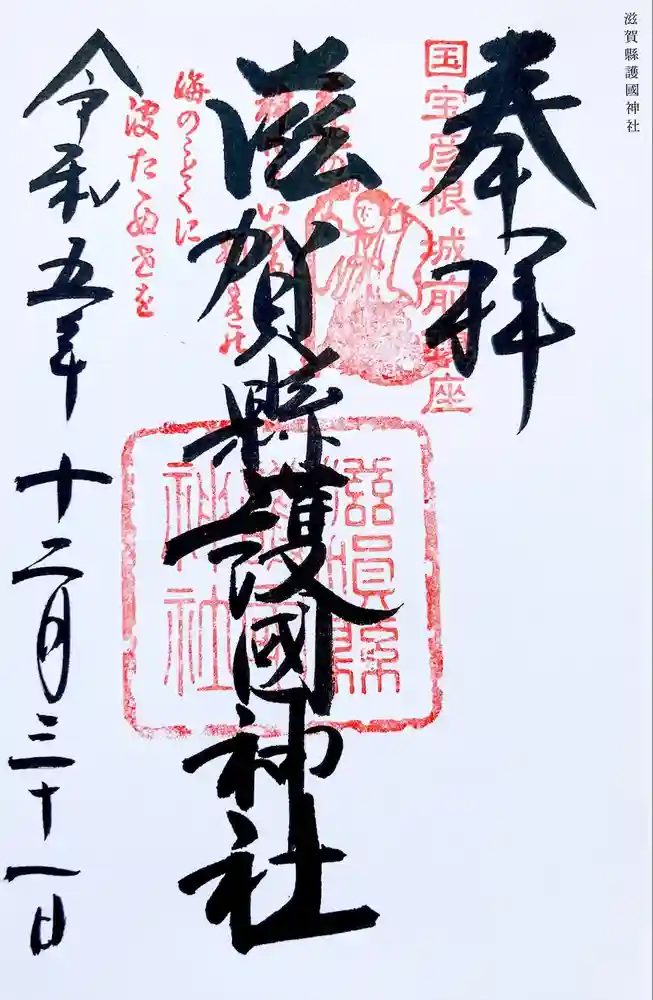 滋賀縣護國神社
奉拝
国宝彦根城前鎮座
滋賀縣護國神社
滋賀縣護國神社
海のことくに
波たゝぬせを
令和五年十二月三十一日